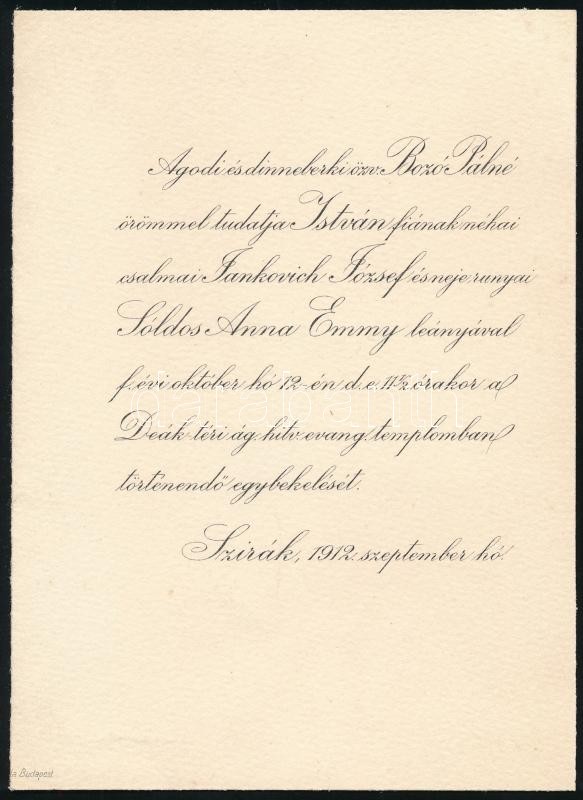 Agodi és dinneberki özv. Bozó Pálné
örömmel tudatja István fiának néhai
csalmai Jankovich József és neje runyai
Sóldos Anna Emmy leányával
f. évi október hó 12-én d. e. 11 1/2 órakor a
Deák téri ág. hitv. evang. templomban
történendő egybekelését.
Szirák, 1912. szeptember hó.
Budapest